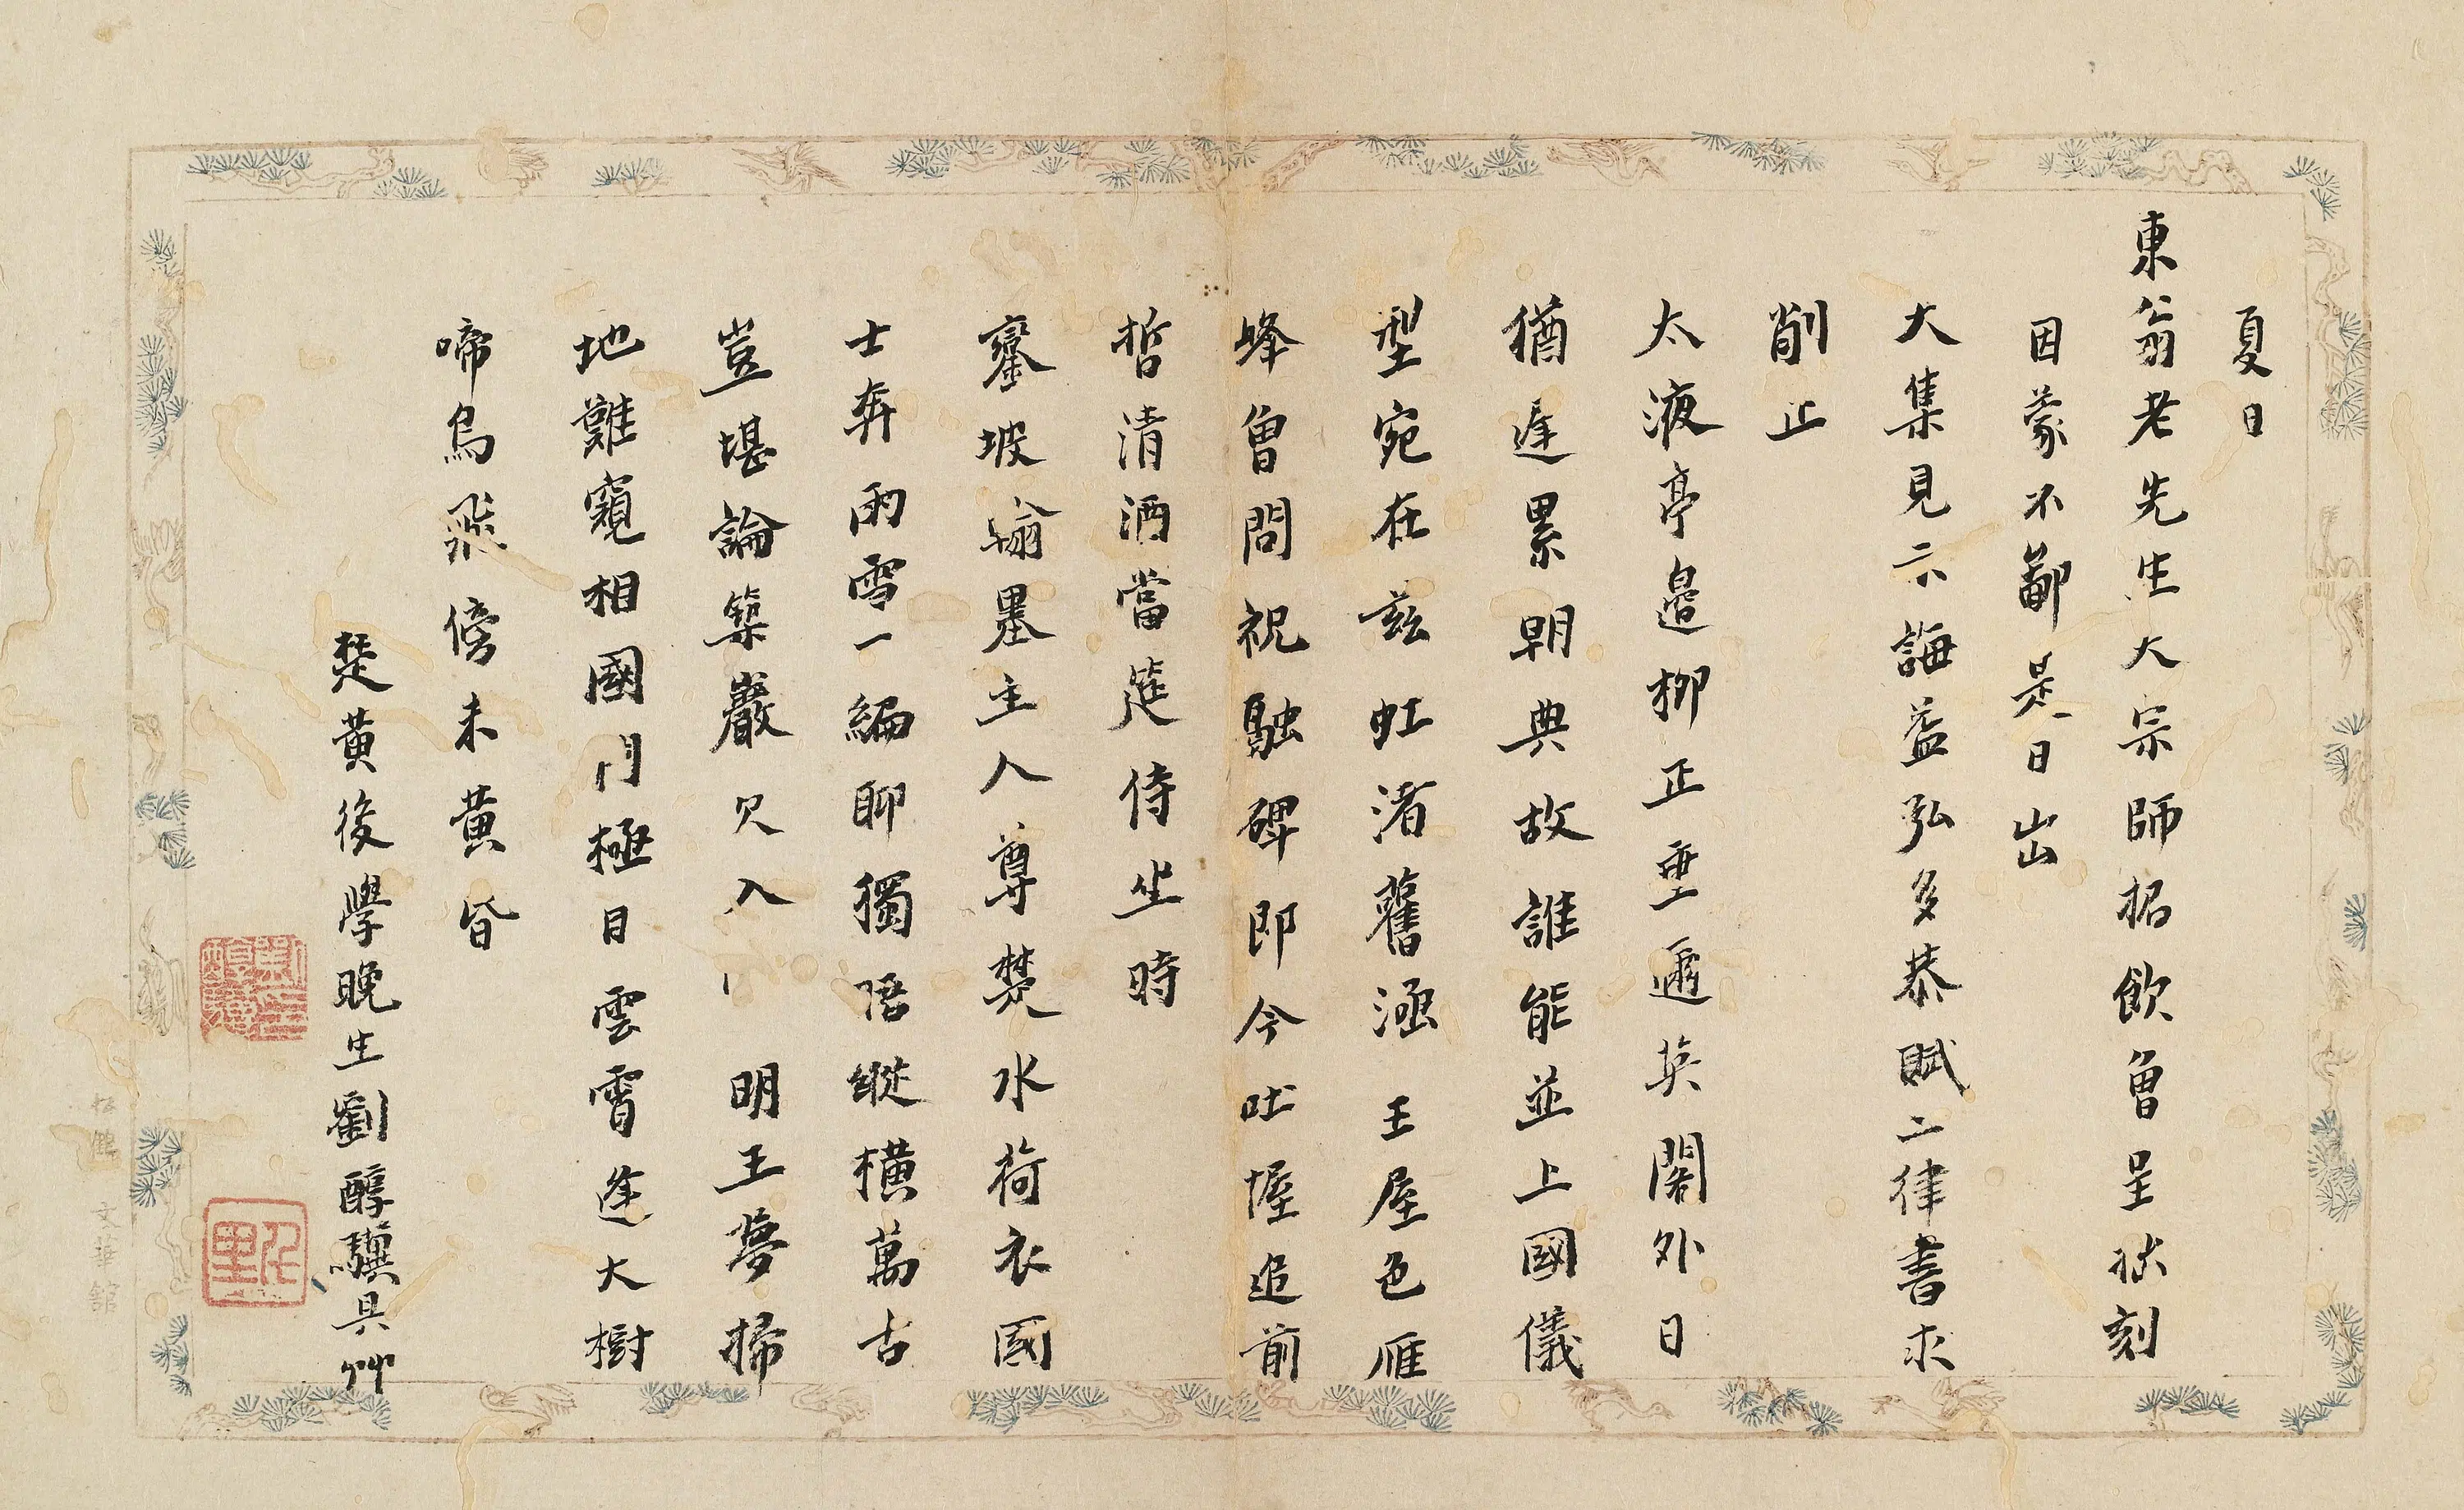 夏日
東翁老先生大宗師招飲曾呈拙刻
因蒙不鄙是日出
大集見示誨益弘多恭賦二律書求
削正
太液亭邊柳正垂邇英閣外日
猶遲累朝典故誰能並上國儀
型宛在茲虹渚舊涵玉屋色雁
峰曾問祝融碑即今吐握追前
哲清酒當筵侍坐時
鑾坡翰墨主人尊楚水荷衣國
士奔雨雪一編聊獨語縱橫萬古
豈堪論築巖只入明王夢掃
地難窺相國門極目雲霄逢大樹
啼烏飛傍未黃昏
楚黃後學晚生劉醇驥具艸
松館 文華館